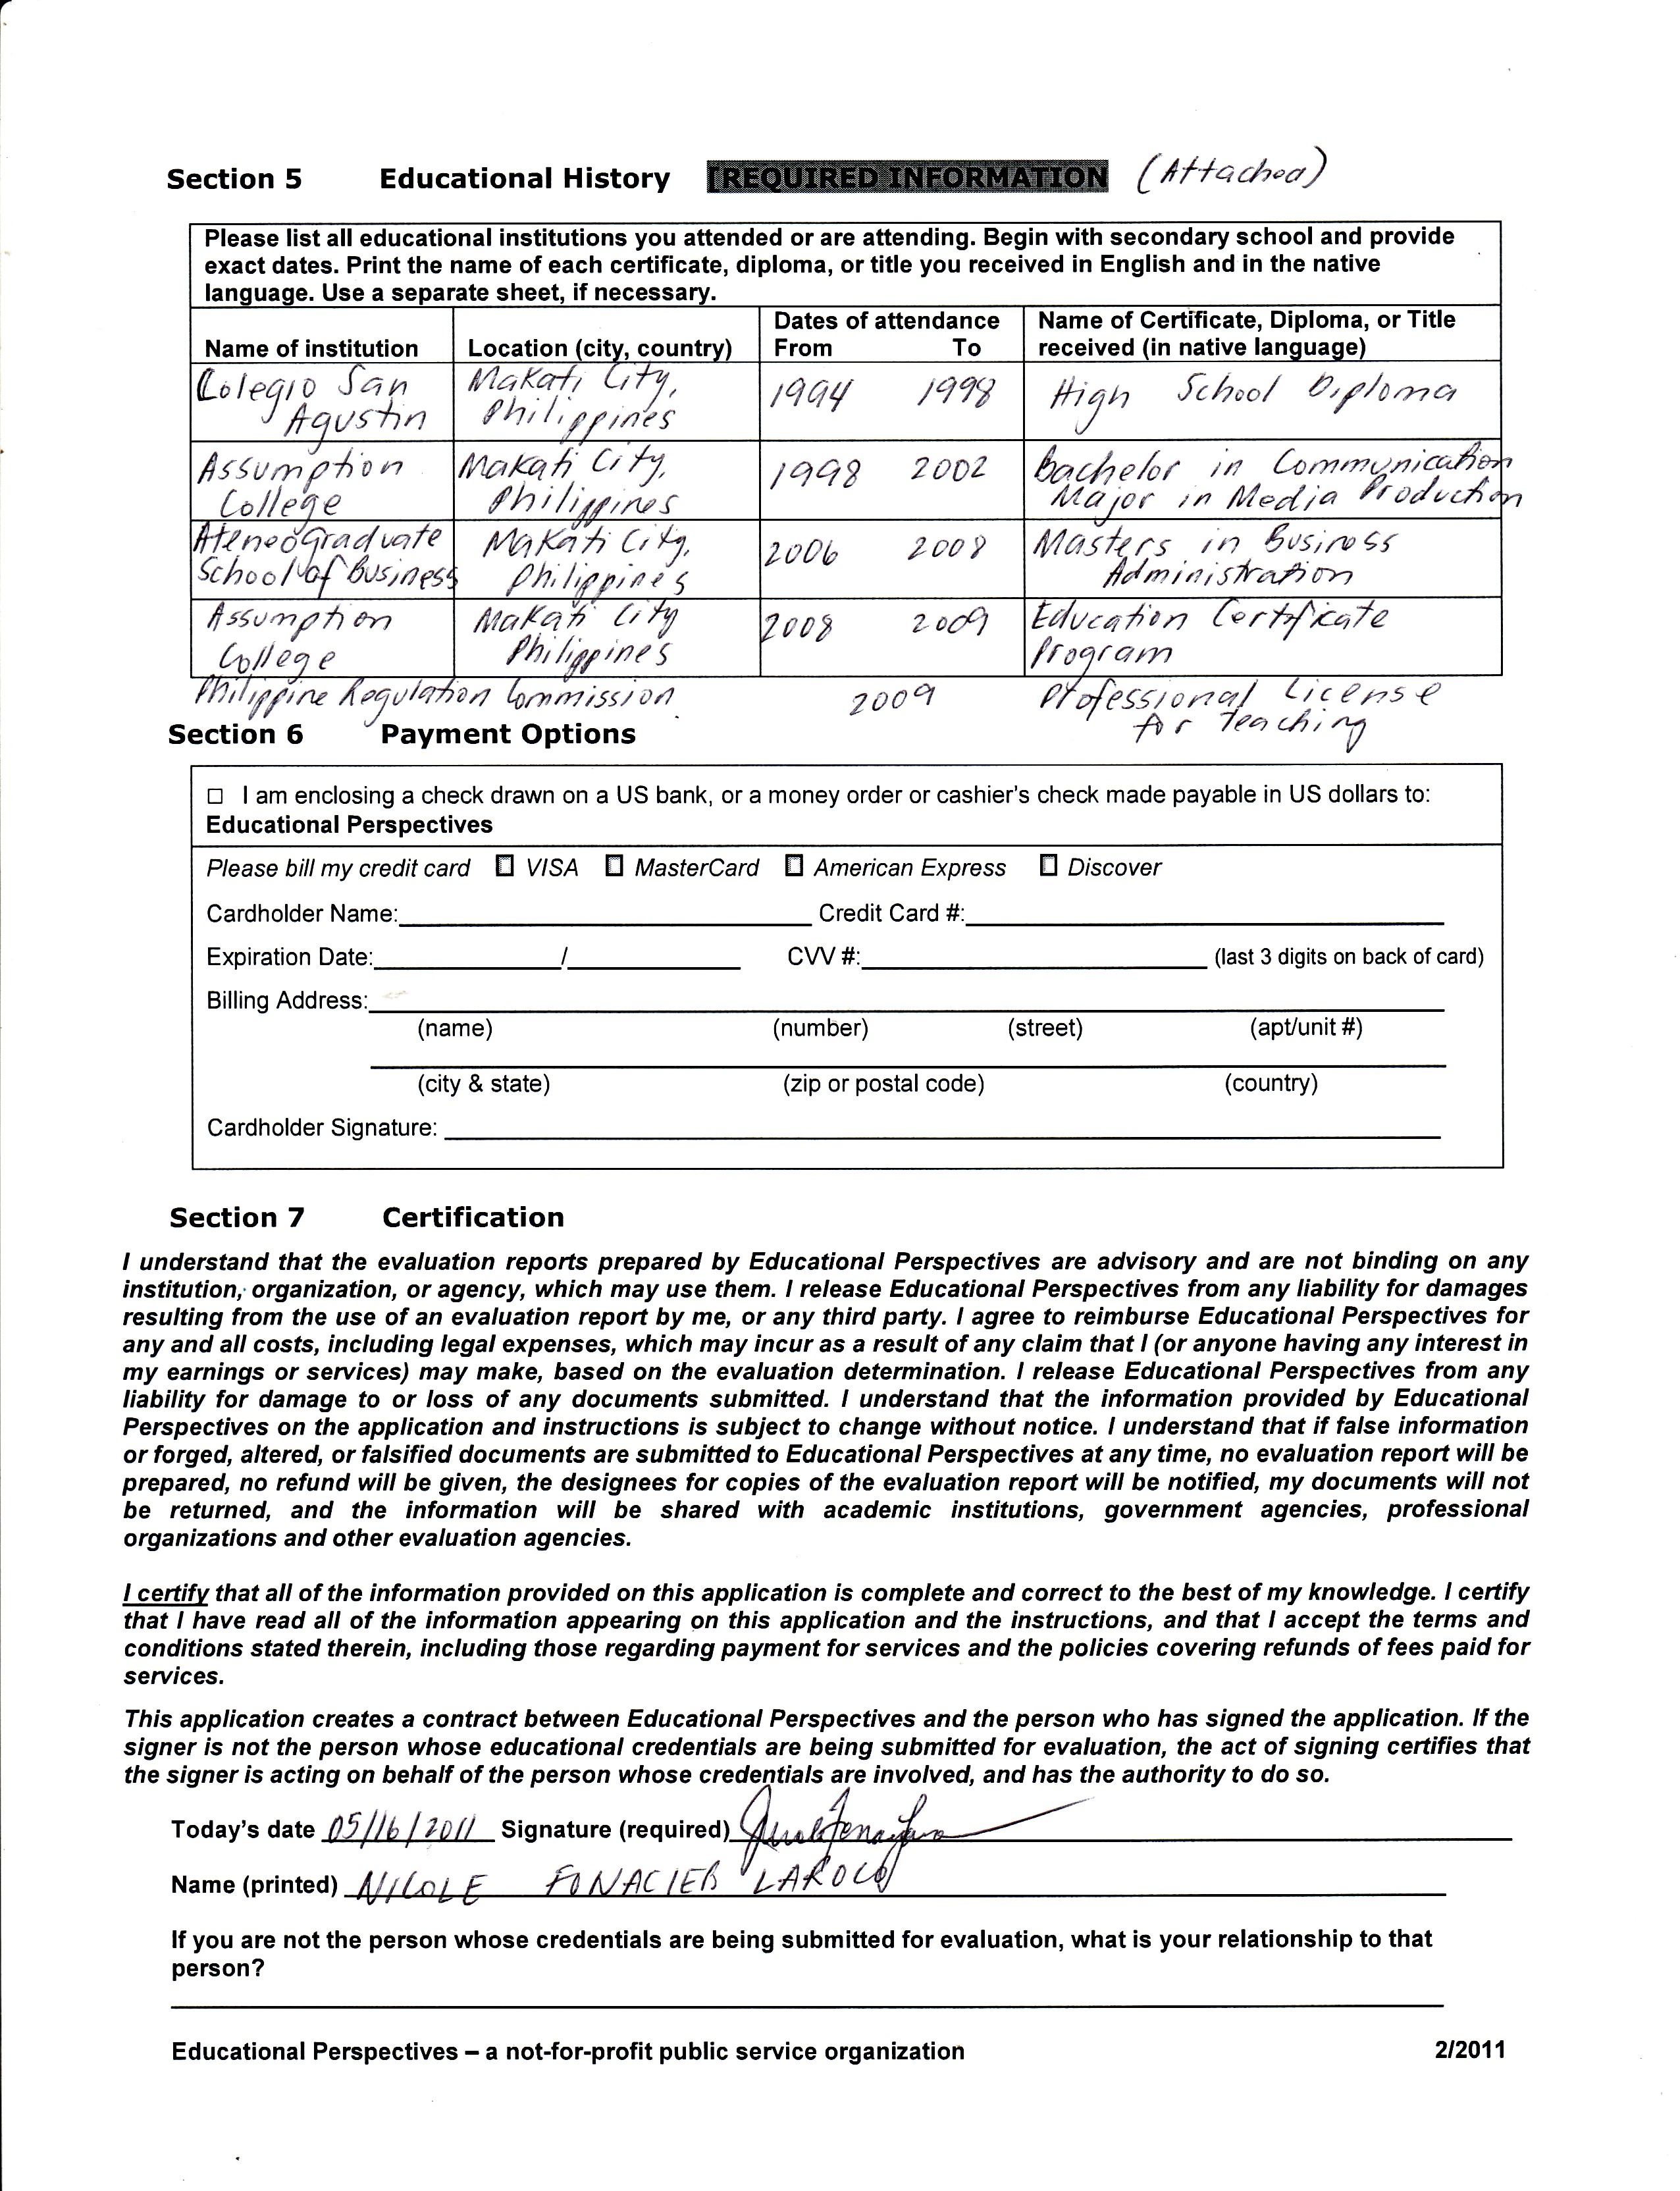 Section 5 Educational History [REQUIRED INFORMATION (Attached)
Please list all educational institutions you attended or are attending. Begin with secondary school and provide
exact dates. Print the name of each certificate, diploma, or title you received in English and in the native
language. Use a separate sheet, if necessary.
Dates of attendance Name of Certificate, Diploma, or Title
Name of institution Location (city, country) From To received (in native language)
Colegio San Makati City, 1994 1998 High School Diploma
Agustin Philippines
Assumption Makati City, 1998 2002 Bachelor in Communication
College Philippines Major in Media Production
Ateneo Graduate Makati City, 2006 2008 Masters in Business
School of Business Philippines Administration
Assumption Makati City 2008 2009 Education Certificate
College Philippines Program
Philippine Regulation Commission 2009 Professional License
for Teaching
Section 6 Payment Options
☐ I am enclosing a check drawn on a US bank, or a money order or cashier's check made payable in US dollars to:
Educational Perspectives
Please bill my credit card ☐ VISA ☐ MasterCard ☐ American Express ☐ Discover
Cardholder Name: Credit Card #:
Expiration Date: / CVV #: (last 3 digits on back of card)
Billing Address:
(name) (number) (street) (apt/unit #)
(city & state) (zip or postal code) (country)
Cardholder Signature:
Section 7 Certification
I understand that the evaluation reports prepared by Educational Perspectives are advisory and are not binding on any
institution, organization, or agency, which may use them. I release Educational Perspectives from any liability for damages
resulting from the use of an evaluation report by me, or any third party. I agree to reimburse Educational Perspectives for
any and all costs, including legal expenses, which may incur as a result of any claim that I (or anyone having any interest in
my earnings or services) may make, based on the evaluation determination. I release Educational Perspectives from any
liability for damage to or loss of any documents submitted. I understand that the information provided by Educational
Perspectives on the application and instructions is subject to change without notice. I understand that if false information
or forged, altered, or falsified documents are submitted to Educational Perspectives at any time, no evaluation report will be
prepared, no refund will be given, the designees for copies of the evaluation report will be notified, my documents will not
be returned, and the information will be shared with academic institutions, government agencies, professional
organizations and other evaluation agencies.
I certify that all of the information provided on this application is complete and correct to the best of my knowledge. I certify
that I have read all of the information appearing on this application and the instructions, and that I accept the terms and
conditions stated therein, including those regarding payment for services and the policies covering refunds of fees paid for
services.
This application creates a contract between Educational Perspectives and the person who has signed the application. If the
signer is not the person whose educational credentials are being submitted for evaluation, the act of signing certifies that
the signer is acting on behalf of the person whose credentials are involved, and has the authority to do so.
Today's date 05/16/2011 Signature (required)
Name (printed) NICOLE FONACIER LAROCO
If you are not the person whose credentials are being submitted for evaluation, what is your relationship to that
person?
Educational Perspectives – a not-for-profit public service organization 2/2011